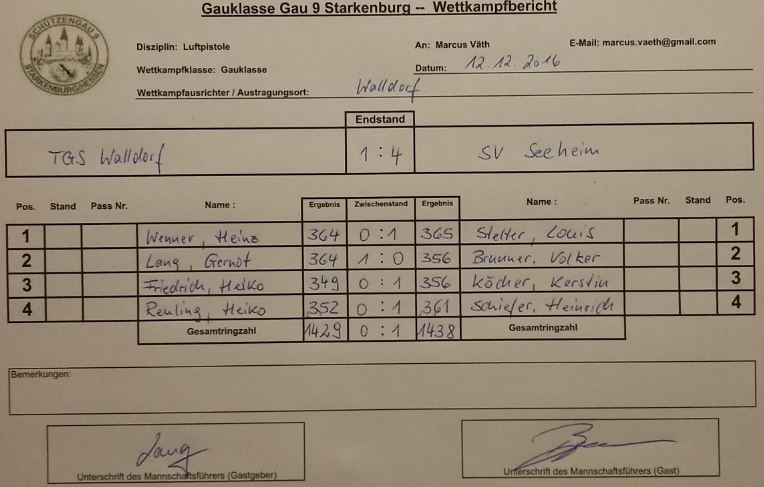 Gauklasse Gau 9 Starkenburg -- Wettkampfbericht
SCHÜTZENGAU 9
STARKENBURG/HESSEN
Disziplin: Luftpistole
An: Marcus Väth
E-Mail: marcus.vaeth@gmail.com
Wettkampfklasse: Gauklasse
Datum: 12.12.2016
Wettkampfausrichter / Austragungsort: Walldorf
Endstand
TGS Walldorf 1 : 4 SV Seeheim
Pos. Stand Pass Nr. Name : Ergebnis Zwischenstand Ergebnis Name : Pass Nr. Stand Pos.
1 Wenner, Heinz 364 0 : 1 365 Stelter, Louis 1
2 Lang, Gernot 364 1 : 0 356 Brunner, Volker 2
3 Friedrich, Heiko 349 0 : 1 356 Köcher, Kerstin 3
4 Reuling, Heiko 352 0 : 1 361 Schiefer, Heinrich 4
Gesamtringzahl 1429 0 : 1 1438 Gesamtringzahl
Bemerkungen:
Lang
Unterschrift des Mannschaftsführers (Gastgeber)
Unterschrift des Mannschaftsführers (Gast)